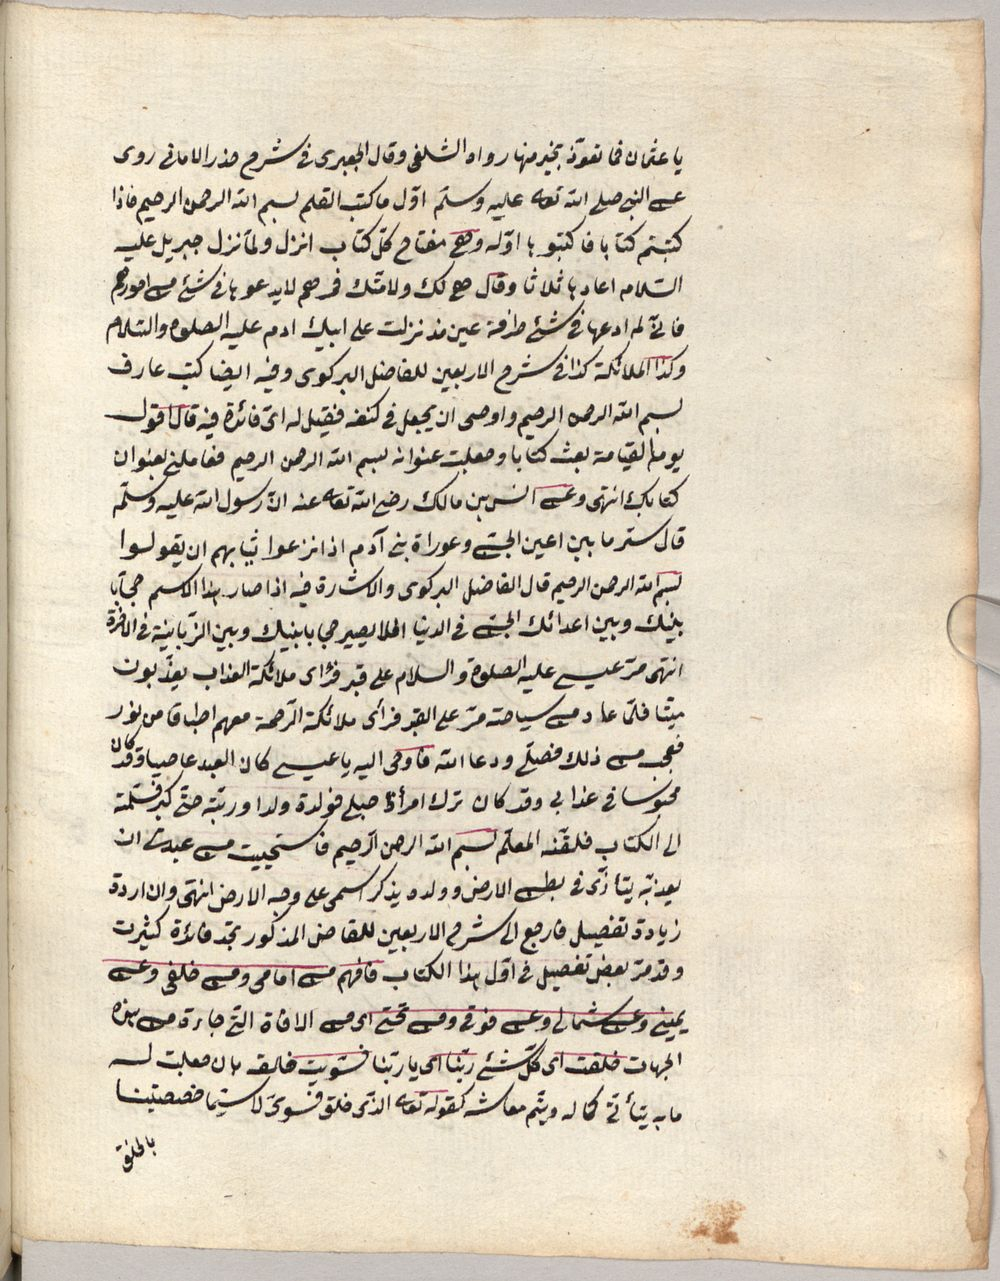 يا عثمان فما تعوّذ بخير منها رواه الثعلبى وقال الجعبرى فى شرح حذر الامانى روى
عن النبى صلى الله تعه عليه وسلّم اوّل ما كتب القلم بسم الله الرحمن الرحيم فاذا
كتبتم كتابا فاكتبوها اوّله وهى مفتاح كلّ كتاب انزل ولمّا نزل جبريل عليه
السّلام اعادها ثلاثا وقال هى لك ولامّتك فمرهم لا يدعوها فى شئ من امورهم
فانّى لم ادعها فى شئ طرفة عين مذ نزلت على ابيك ادم عليه الصلوة والسّلام
وكذا الملائكة كذا فى شرح الاربعين للفاضل البركوى وفيه ايضا كتب عارف
بسم الله الرحمن الرحيم واوصى ان يجعل فى كفنه فقيل له اىّ فائدة فيه قال اقول
يوم القيامة بعث كتابا وجعلت عنوانه بسم الله الرحمن الرحيم فعاملنى بعنوان
كتابك انتهى وعن انس بن مالك رضى الله تعه عنه انّ رسول الله عليه وسلّم
قال ستر ما بين اعين الجنّ وعوراة بنى آدم اذا نزعوا ثيابهم ان يقولوا
بسم الله الرحمن الرحيم قال الفاضل البركوى والاشارة فيه اذا صار هذا الاسم حجابا
بينك وبين اعدائك الجنّ فى الدنيا افلا يصير حجابا بينك وبين الزّبانية فى الاخرة
انتهى مرّ عيسى عليه الصلوة والسلام على قبر فرأى ملائكة العذاب يعذّبون
ميتا فلمّا عاد من سياحته مرّ على القبر فرأى ملائكة الرّحمة معهم اطباقا من نور
فعجب من ذلك فصلّى ودعا الله فاوحى اليه يا عيسى كان العبد عاصيا وقد كان
محبوسا فى عذابى وقد كان ترك امرأة حبلى فولدة ولدا وربّته حتّى كبر فسلّمته
الى الكتاب فلقّنه المعلّم بسم الله الرحمن الرّحيم فاستحييت من عبدى ان
يعذبه بنارى فى بطن الارض وولده يذكر اسمى على وجه الارض انتهى وان اردة
زيادة تفصيل فارجع الى شرح الاربعين للفاضل المذكور تجد فائدة كثيرت
وقد مرّ بعض تفصيل فى اوّل هذا الكتاب فافهم من امامى ومن خلفى وعن
يمينى وعن شمالى وعن فوقى ومن تحتى اى من الافاة التى جاءة من هذه
الجهات خلقت اى كلّ شئ ربّنا اى يا ربّنا فسوّيت خلقه بان جعلت له
ما به يتأتّى كماله ويتمّ معاشه كقوله تعه الذى خلق فسوّى لا سيّما خصصتنا
بالخلق